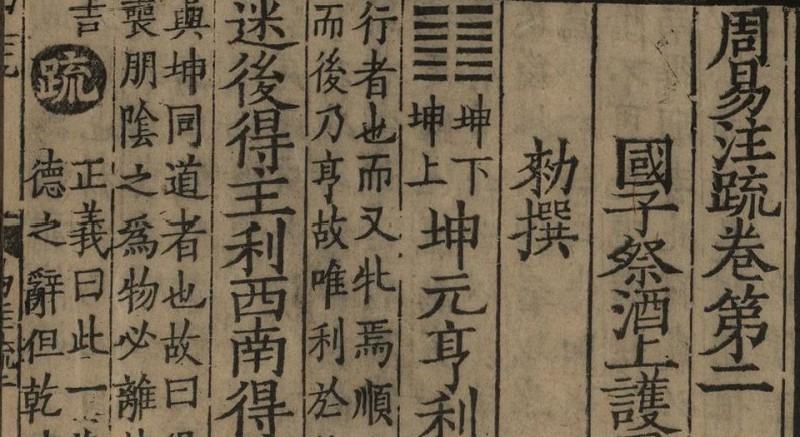 周易注疏卷第二
國子祭酒上護
勑撰
䷁坤下坤上坤元亨利
行者也而又牝焉順
而後乃亨故唯利於
迷後得主利西南得
與坤同道者也故曰
喪朋陰之爲物必離
吉疏正義曰此一
德之辭但乾